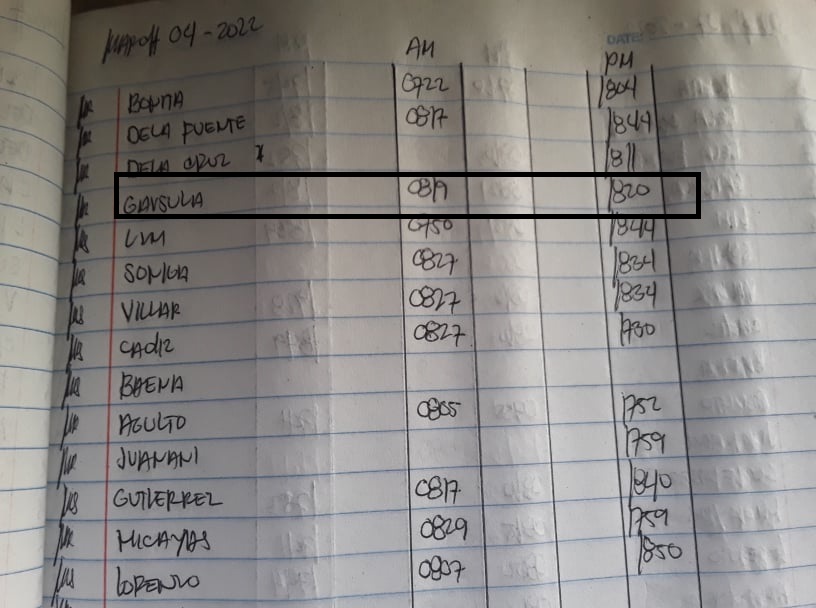 March 04 - 2022
DATE:
AM PM
Ms BONITA 0722 1804
Ms DELA FUENTE 0817 1844
Ms DELA CRUZ x 1811
Ms GAVSULA 0819 1820
Ms LIM 0750 1844
Ms SONIGA 0827 1834
Ms VILLAR 0827 1834
Ms CADIZ 0827 1730
Ms BAENA
Ms AGULTO 0805 1752
Ms JUANANI 1759
Ms GUTIERREZ 0817 1840
Ms MICAYAS 0829 1759
Ms LORENZO 0807 1850